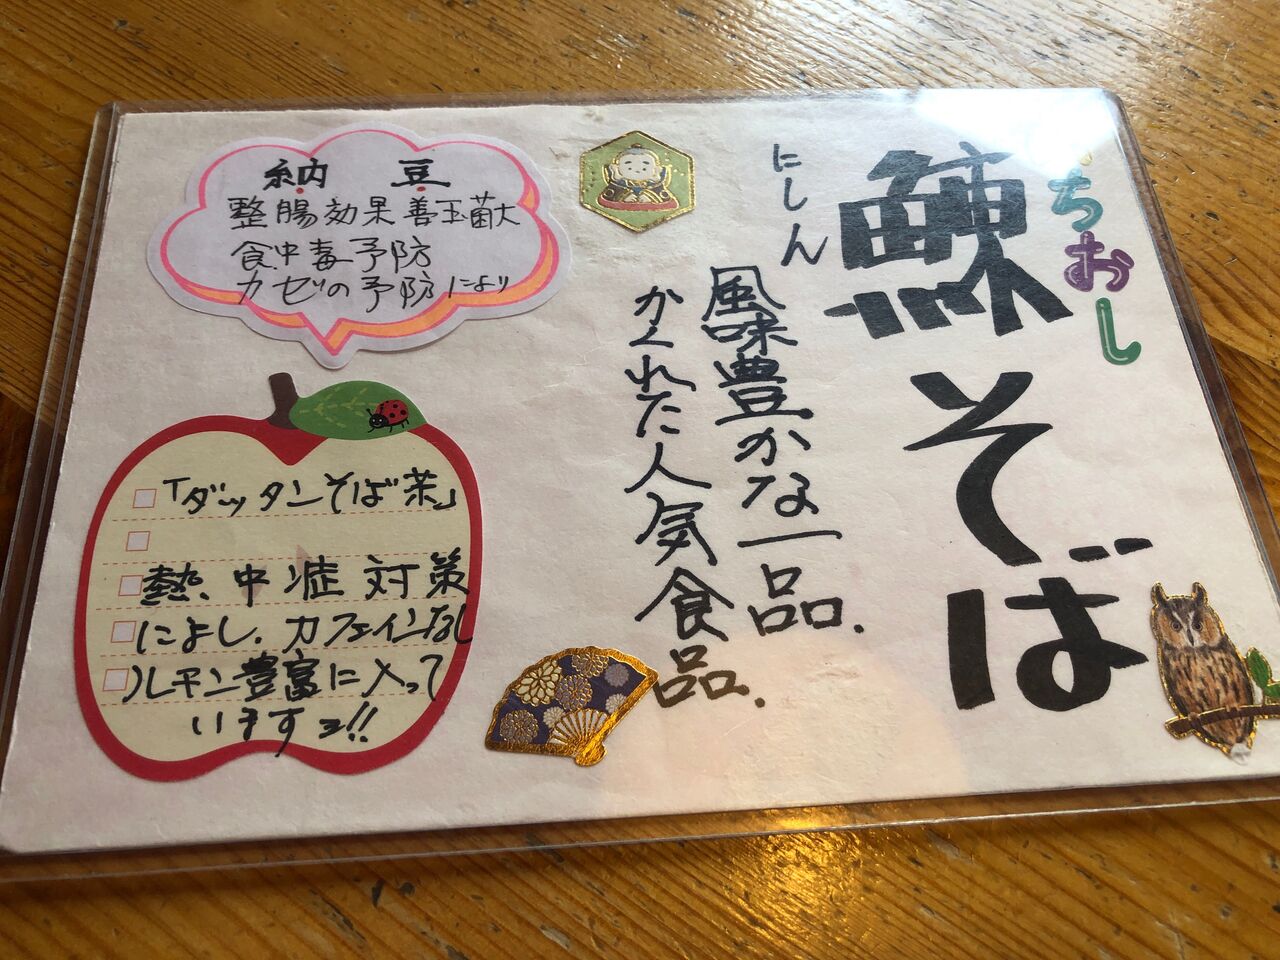 いちおし
鰊そば
にしん
風味豊かな一品.
かくれた人気食品.
納豆
整腸効果善玉菌大
食中毒予防
カゼの予防により
「ダッタンそば茶」
熱中症対策
によし.カフェインなし
ルチン豊富に入って
いますヨ!!